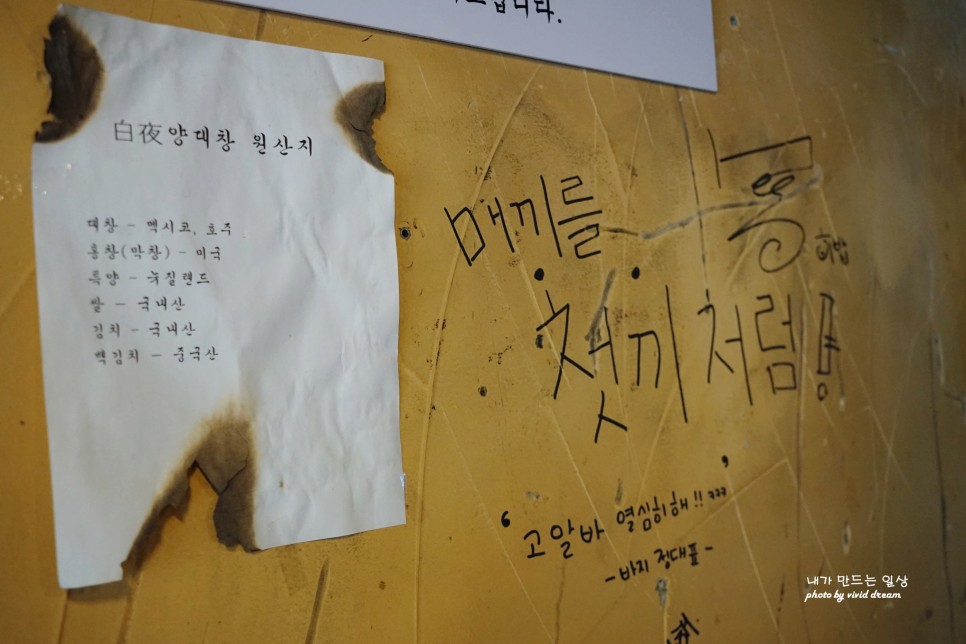 白夜양대창 원산지
대창 - 멕시코, 호주
홍창(막창) - 미국
특양 - 뉴질랜드
쌀 - 국내산
김치 - 국내산
백김치 - 중국산
매끼를
첫끼처럼!
'고알바 열심히해!! ㅋㅋㅋ'
- 바지 정대표 -
내가 만드는 일상
photo by vivid dream